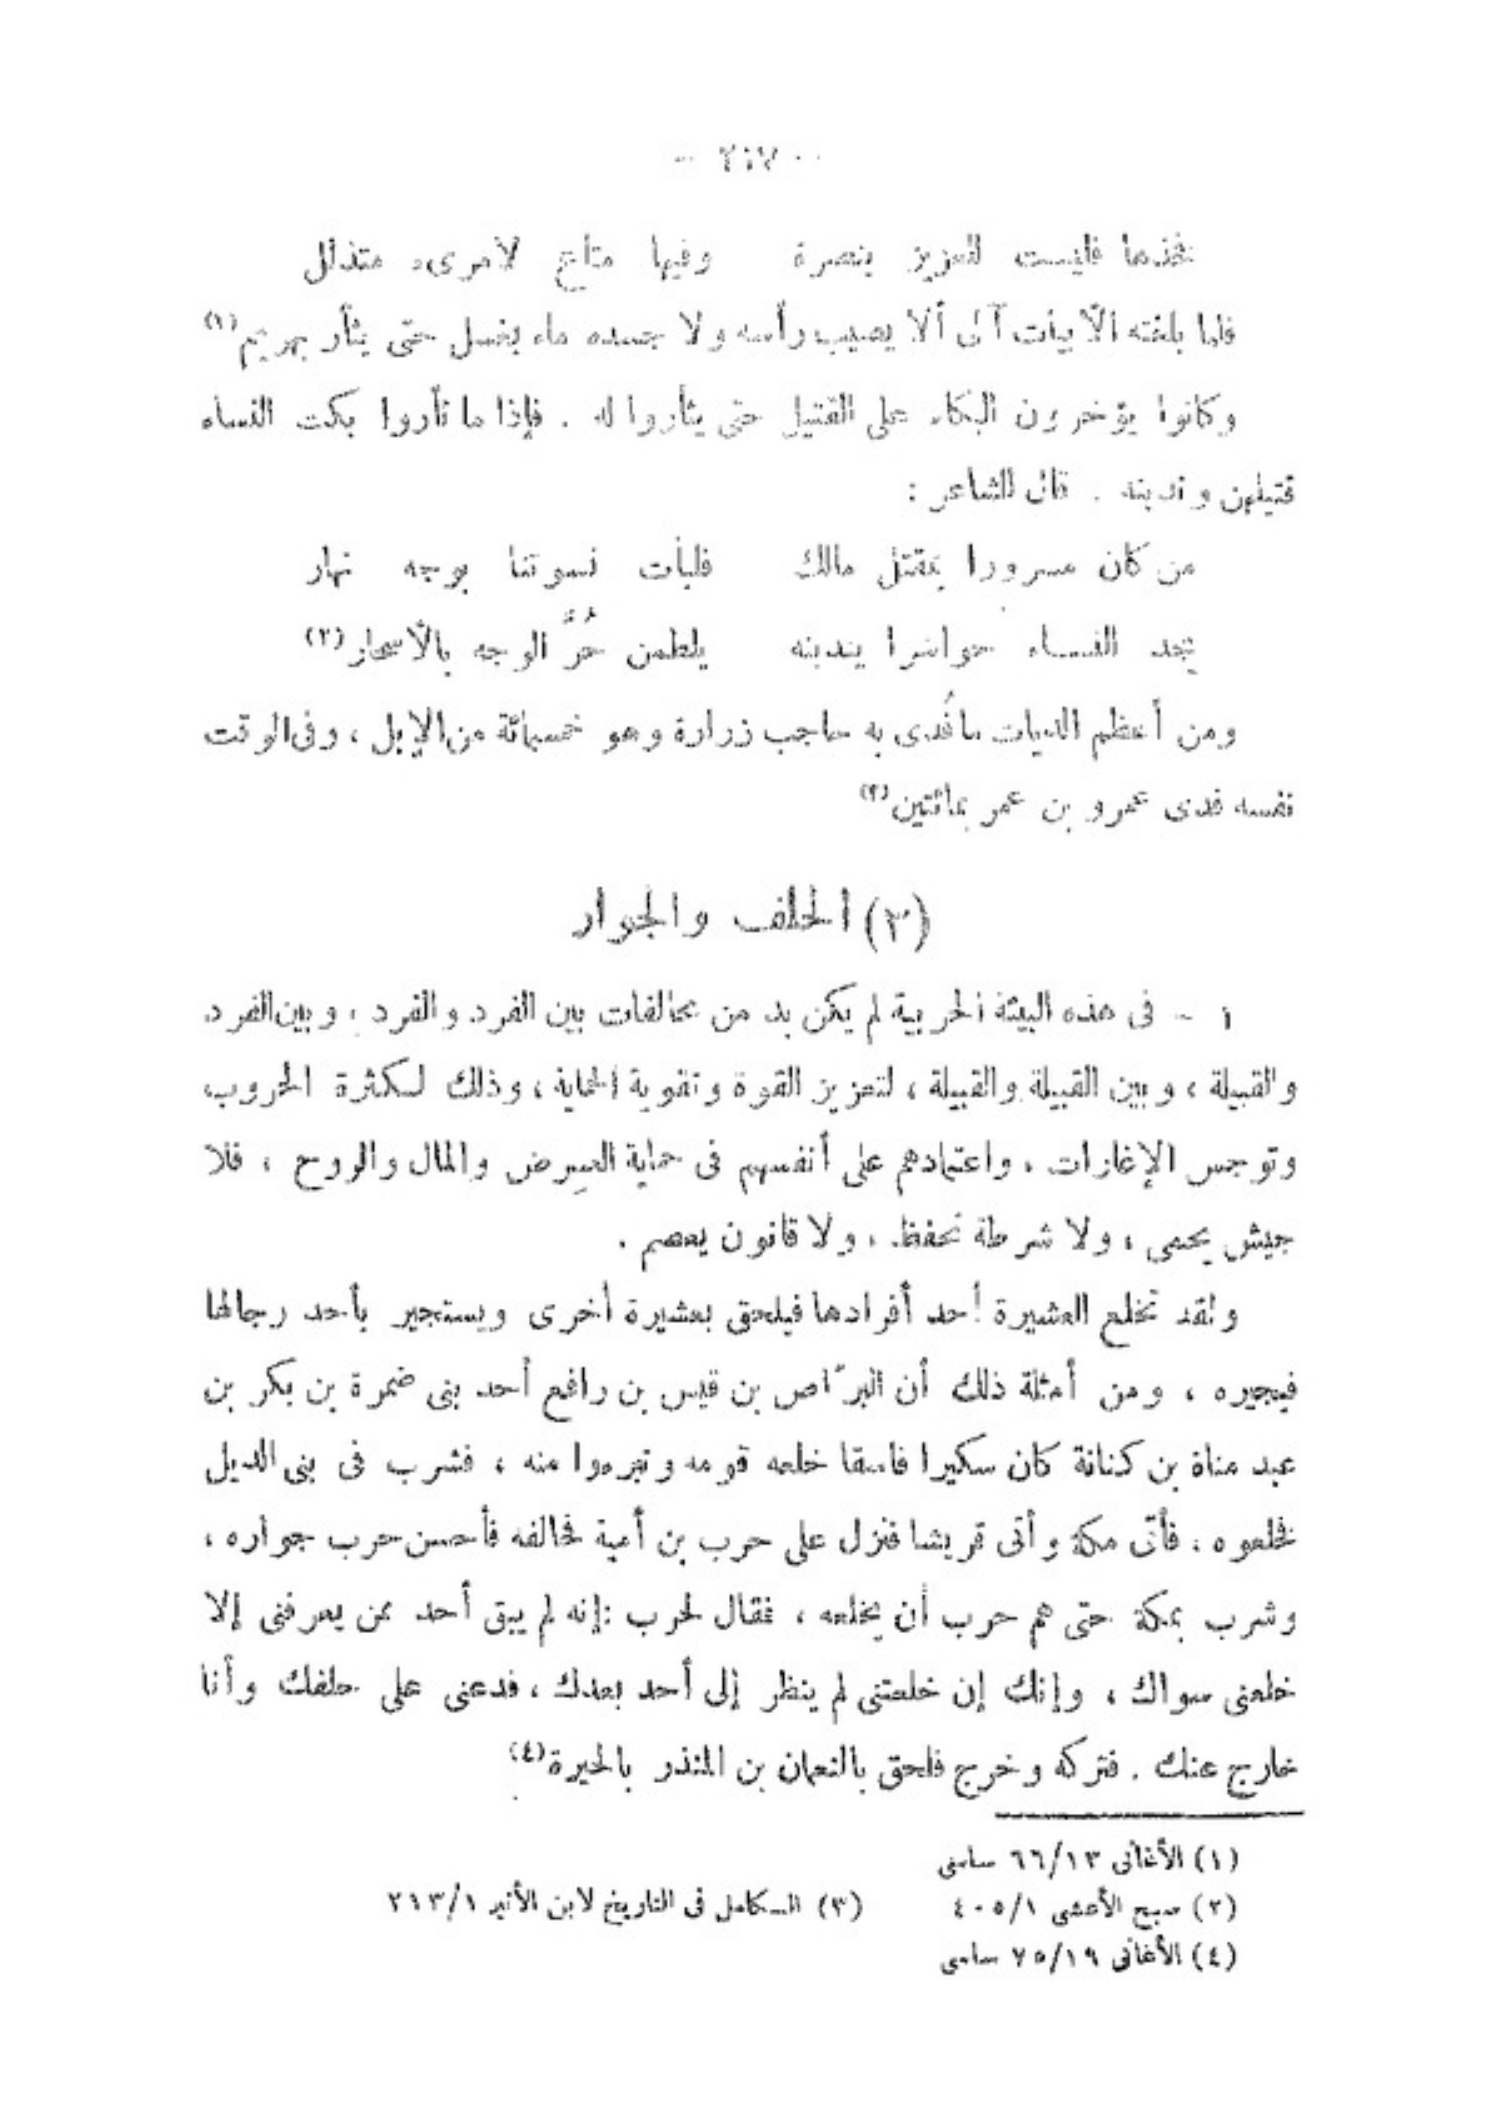 فخذها فليست للعزيز بنصرة    وفيها متاع لامرىء متذلل
فلما بلغته الأبيات آلى ألا يصيب رأسه ولا جسده ماء بغسل حتى يثأر بهريم (١)
وكانوا يؤخرون البكاء على القتيل حتى يثأروا له . فإذا ما ثأروا بكت النساء
قتيلهن وندبنه . قال الشاعر :
من كان مسرورا بمقتل مالك    فليأت نسوتنا بوجه نهار
يجد النساء حواسرا يندبنه    يلطمن حُرَّ الوجه بالأسحار (٢)
ومن أعظم الديات ما فُدى به حاجب زرارة وهو خمسمائة من الإبل ، وفى الوقت
نفسه فدى عمرو بن عمر بمائتين (٣)
(٣) الحلف والجوار
١ - فى هذه البيئة الحربية لم يكن بد من محالفات بين الفرد والفرد ، وبين الفرد
والقبيلة ، وبين القبيلة والقبيلة ، لتعزيز القوة وتقوية الحماية ، وذلك لكثرة الحروب
وتوجس الإغارات ، واعتمادهم على أنفسهم فى حماية العِرض والمال والروح ، فلا
جيش يحمى ، ولا شرطة تحفظ ، ولا قانون يعصم .
ولقد تخلع العشيرة أحد أفرادها فيلحق بعشيرة أخرى ويستجير بأحد رجالها
فيجيره ، ومن أمثلة ذلك أن البرّاص بن قيس بن رافع أحد بنى ضمرة بن بكر بن
عبد مناة بن كنانة كان سكيرا فاسقا خلعه قومه وتبرءوا منه ، فشرب فى بنى الديل
فخلعوه ، فأتى مكة وأتى قريشا فنزل على حرب بن أمية فحالفه فأحسن حرب جواره ،
وشرب بمكة حتى هم حرب أن يخلعه ، فقال لحرب : إنه لم يبق أحد ممن يعرفنى إلا
خلعنى سواك ، وإنك إن خلعتنى لم ينظر إلى أحد بعدك ، فدعنى على حلفك وأنا
خارج عنك . فتركه وخرج فلحق بالنعمان بن المنذر بالحيرة (٤)
(١) الأغانى ٦٦/١٣ ساسى
(٢) صبح الأعشى ٤٠٥/١    (٣) الكامل فى التاريخ لابن الأثير ٢١٣/١
(٤) الأغانى ٧٥/١٩ ساسى